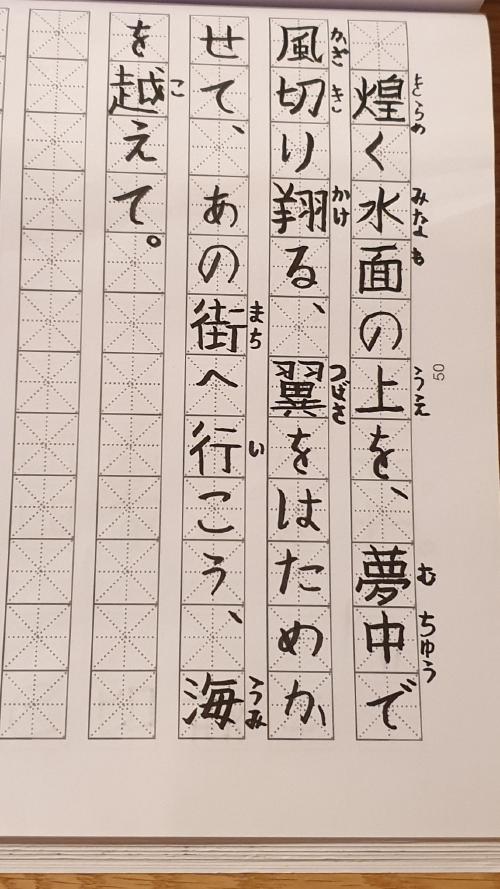 煌く水面の上を、夢中で
風切り翔る、翼をはためか
せて、あの街へ行こう、海
を越えて。
きらめ
みなも
うえ
むちゅう
かざき
かけ
つばさ
まち
い
うみ
こ
50